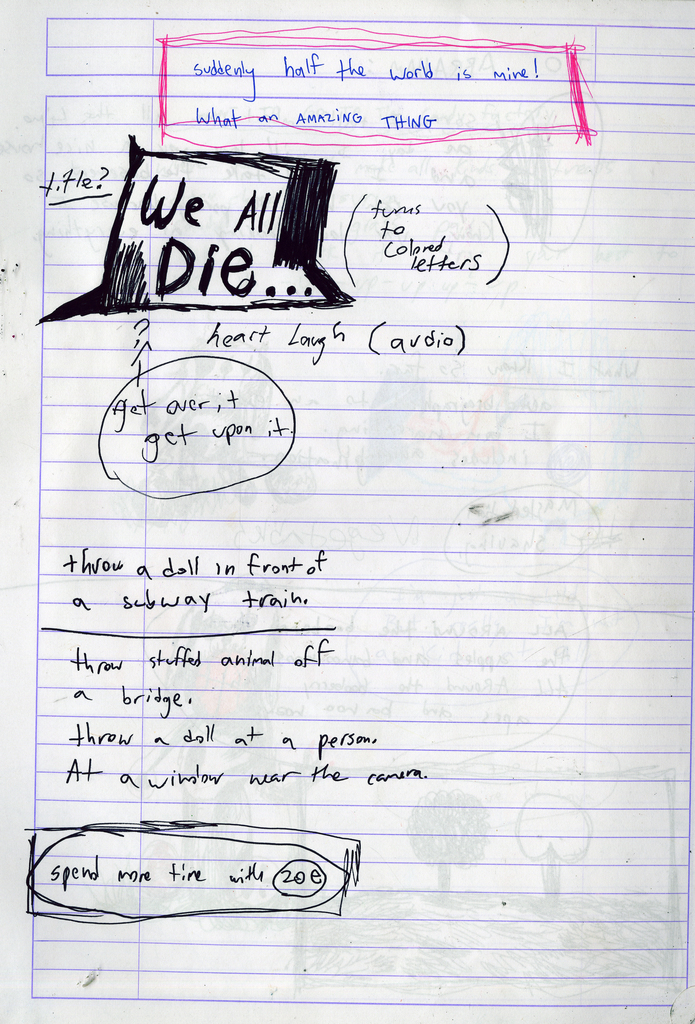 suddenly half the world is mine!
What an AMAZING THING
title?
We All
Die...
(turns
to
colored
letters)
?
heart laugh (audio)
get over it
get upon it.
throw a doll in front of
a subway train.
throw stuffed animal off
a bridge.
throw a doll at a person.
At a window near the camera.
spend more time with zoe